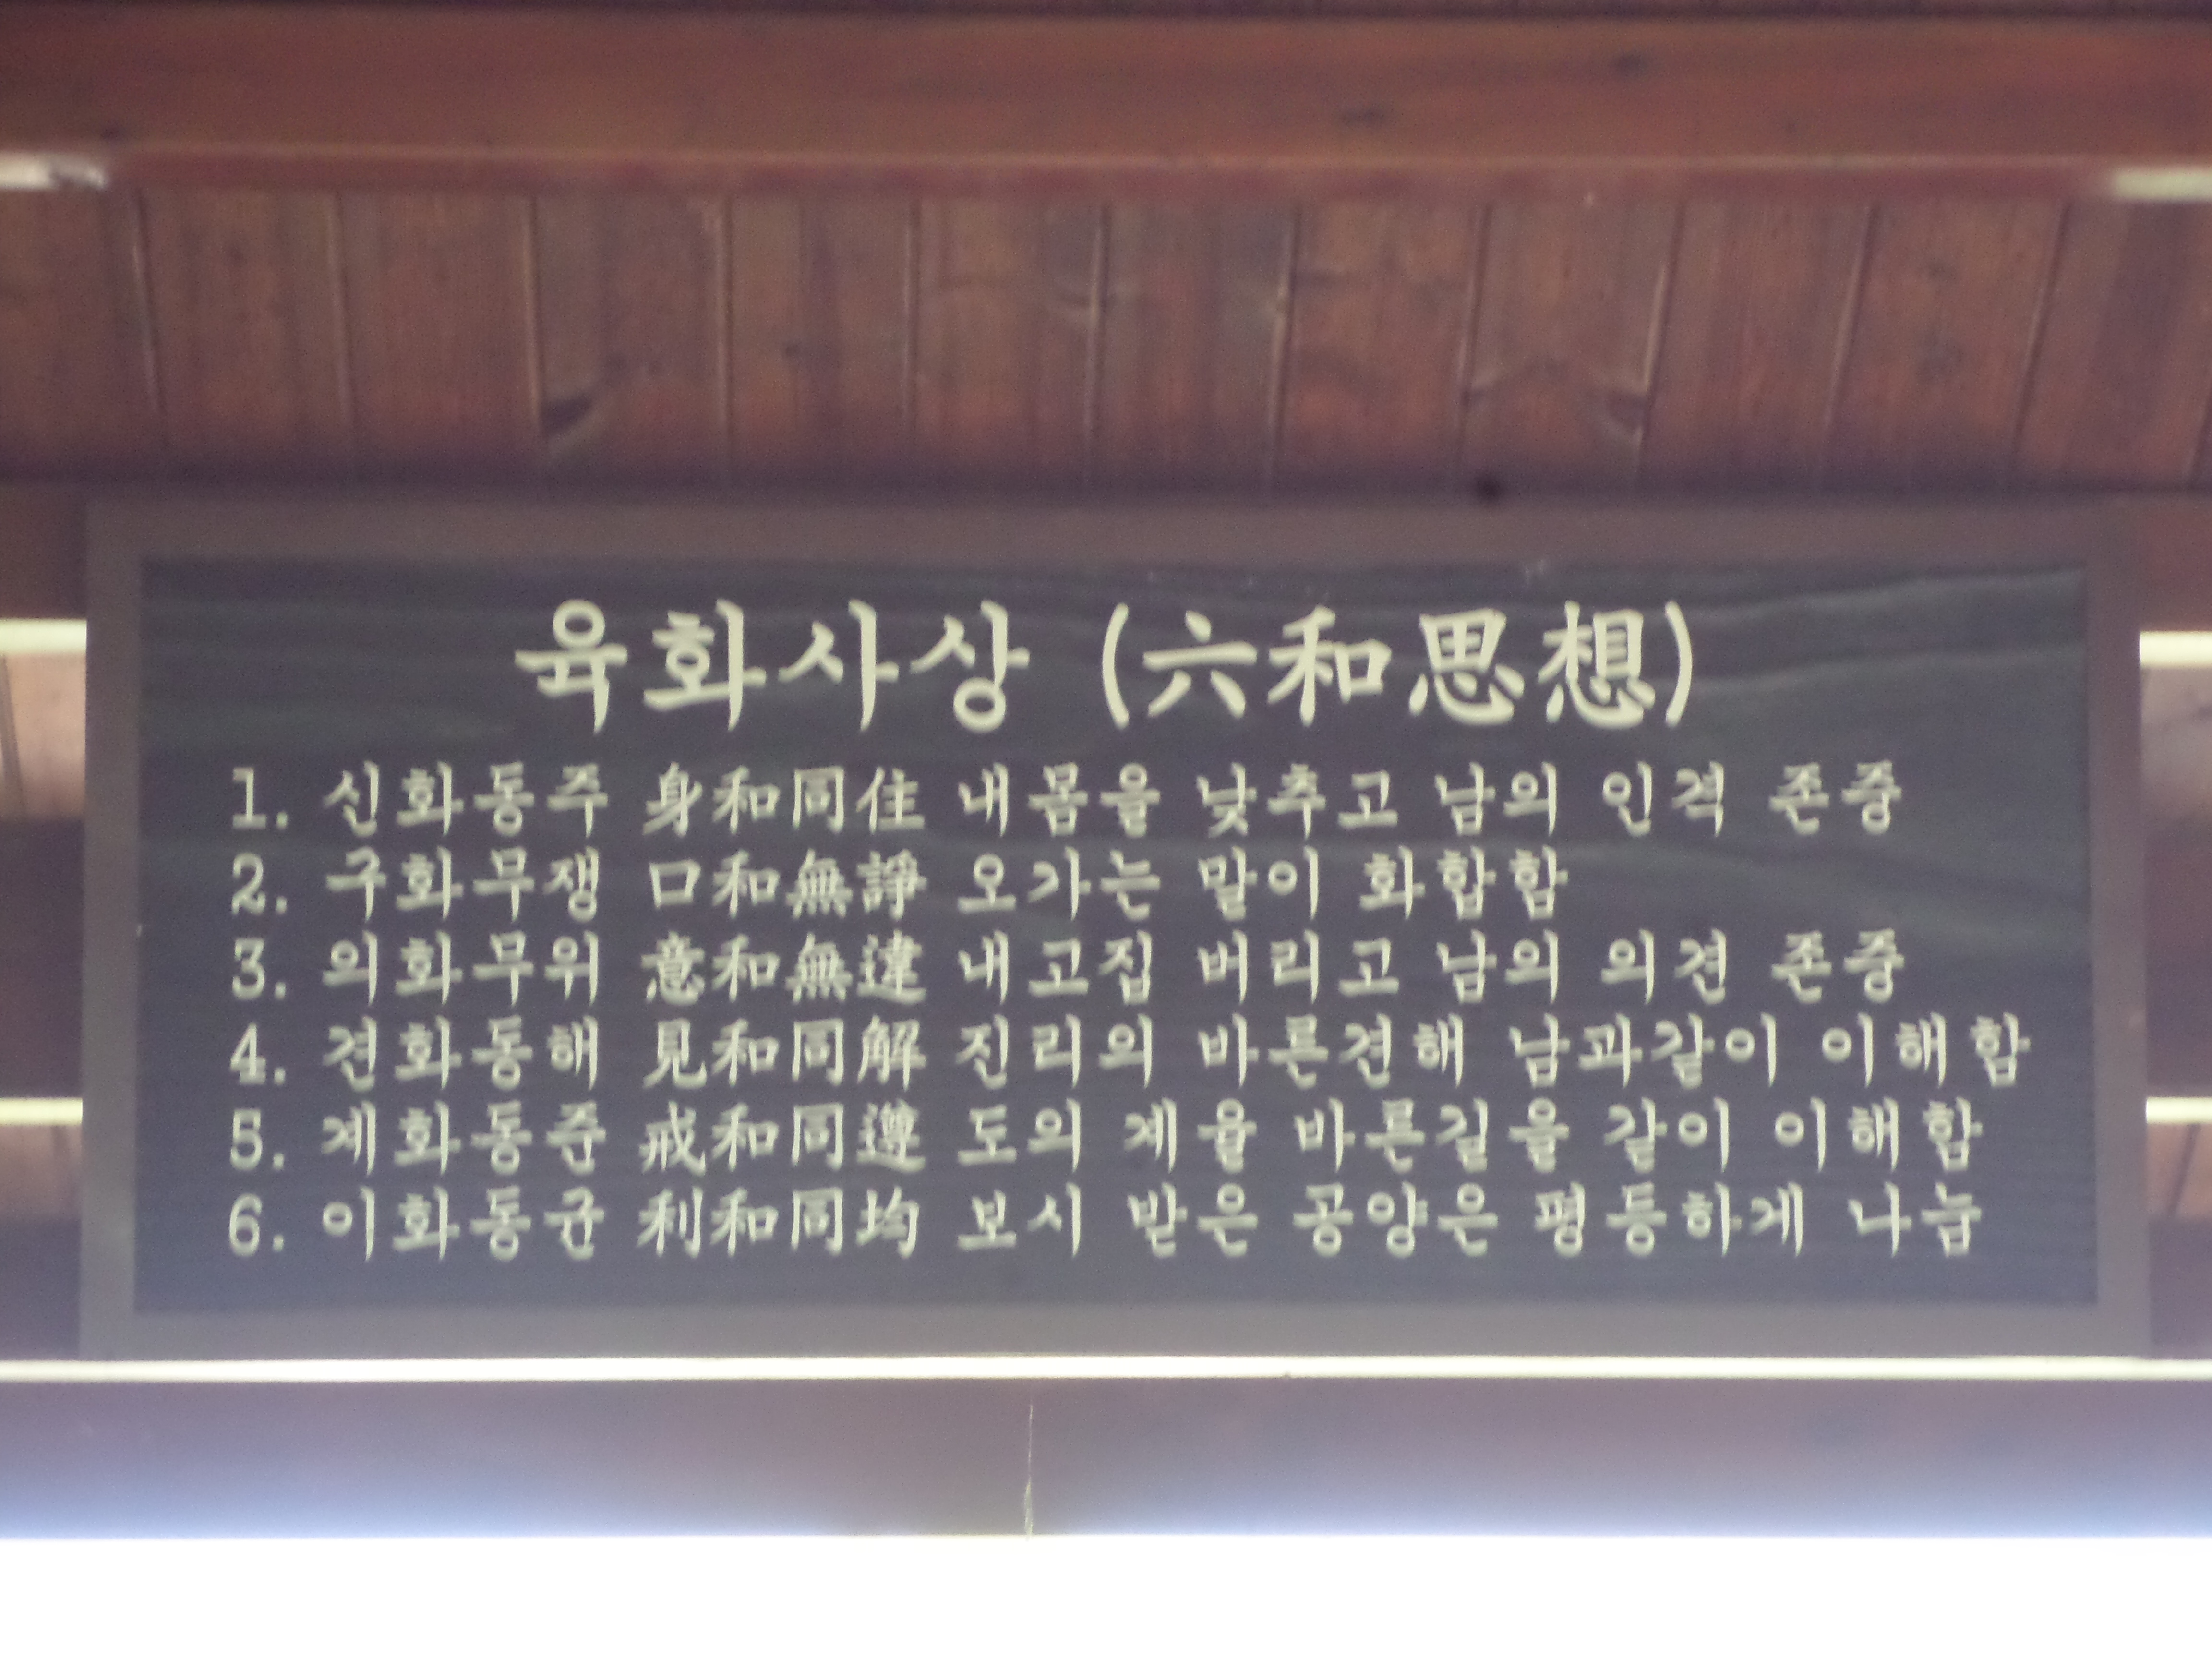 육화사상 (六和思想)
1. 신화동주 身和同住 내몸을 낮추고 남의 인격 존중
2. 구화무쟁 口和無諍 오가는 말이 화합함
3. 의화무위 意和無違 내고집 버리고 남의 의견 존중
4. 견화동해 見和同解 진리의 바른견해 남과같이 이해함
5. 계화동준 戒和同遵 도의 계율 바른길을 같이 이해함
6. 이화동균 利和同均 보시 받은 공양은 평등하게 나눔